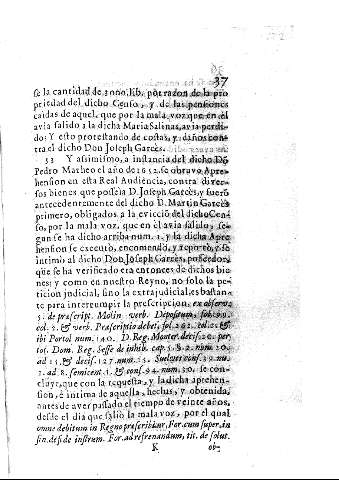 37
se la cantidad de 2000. lib. por razon de la pro
priedad del dicho Censo, y de las pensiones
caidas de aquel, que por la mala voz que en el
avia salido a la dicha Maria Salinas, avia perdi-
do: Y esto protestando de costas, y daños con-
tra el dicho Don Joseph Garcès.
53 Y assimismo, a instancia del dicho Dō
Pedro Matheo el año de 1652. se obtuvo Apre-
hension en esta Real Audiencia, contra diver-
sos bienes que posseìa D. Joseph Garcès, y fuerō
antecedentemente del dicho D. Martin Garcès
primero, obligados a la eviccion del dicho Cen-
so, por la mala voz, que en èl avia salido, se-
gun se ha dicho arriba num. 1. y la dicha Apre
hension se executò, encomendò, y reportò, y se
intimò al dicho Don Joseph Garcès, posseedor,
que se ha verificado era entonces de dichos bie
nes; y como en nuestro Reyno, no solo la pe-
ticion judicial, sino la extrajudicial, es bastan-
te para interrumpir la prescripcion, ex observ.
5. de præscript. Molin verb. Depositum, fol.
col. 3. & verb. Præscriptio debet, fol. 262. col. 2. &
ibi Portol num. 40. D. Reg. Monter decis. per
tot. Dom. Reg. Sesse de inhib. cap. 5. §. 2. num. 20.
ad 25. & decis. 127. num. 15. Suelves cons. 39. nu.
7. ad 8. semicent. 1. & cons. 94. num. 30. se con-
cluye, que con la requesta, y la dicha aprehen-
sion, è intima de aquella, hechas, y obtenida,
antes de aver passado el tiempo de veinte años,
desde el dia que saliò la mala voz, por el qual
omne debitum in Regno præscribitur, For. cum super, in
fin. de fide instrum. For. ad refrenandum, tit. de solut.
K ob-